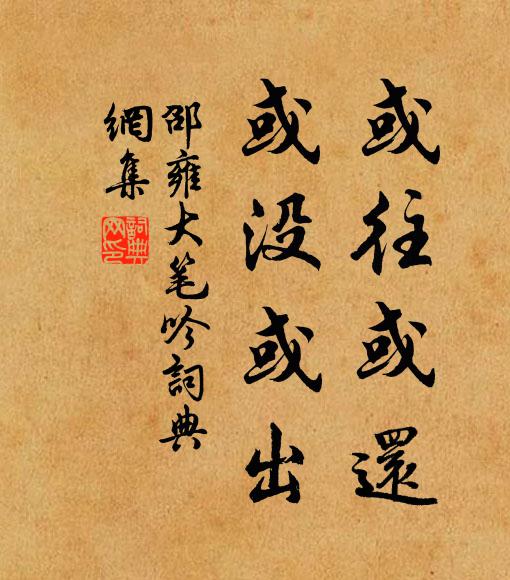 或往或還
或没或出
邵雍大笔吟詞典
網集
詞典
网印